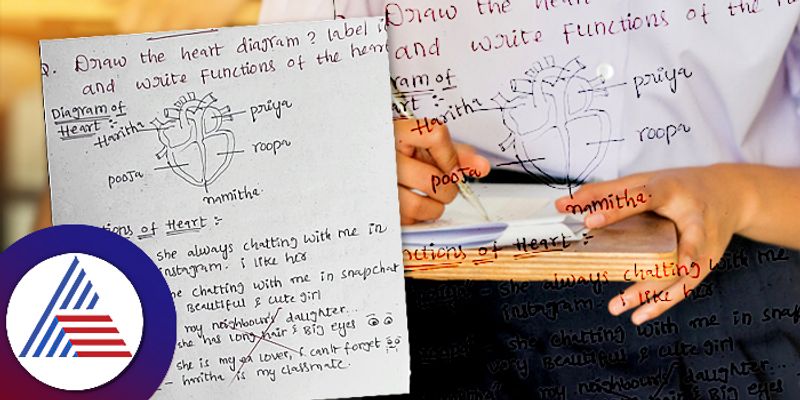 Q. Draw the heart diagram? label i
and write Functions of the hear
Diagram of
Heart :-
Haritha
priya
roopa
pooja
namitha.
tions of Heart :-
she always chatting with me in
instagram. i like her
he chatting with me in snapchat
Beautiful & cute girl
my neighbours daughter...
she has long hair & Big eyes
she is my ex lover, i can't forget
- haritha is my classmate.
Draw the hear
and write Functions of the
ram of
art :-
Haritha
priya
roopa
pooja
namitha.
nctions of Heart :-
she always chatting with me
instagram. i like her
she chatting with me in snap
very Beautiful & cute girl
my neighbours daughter...
she has long hair & Big eyes